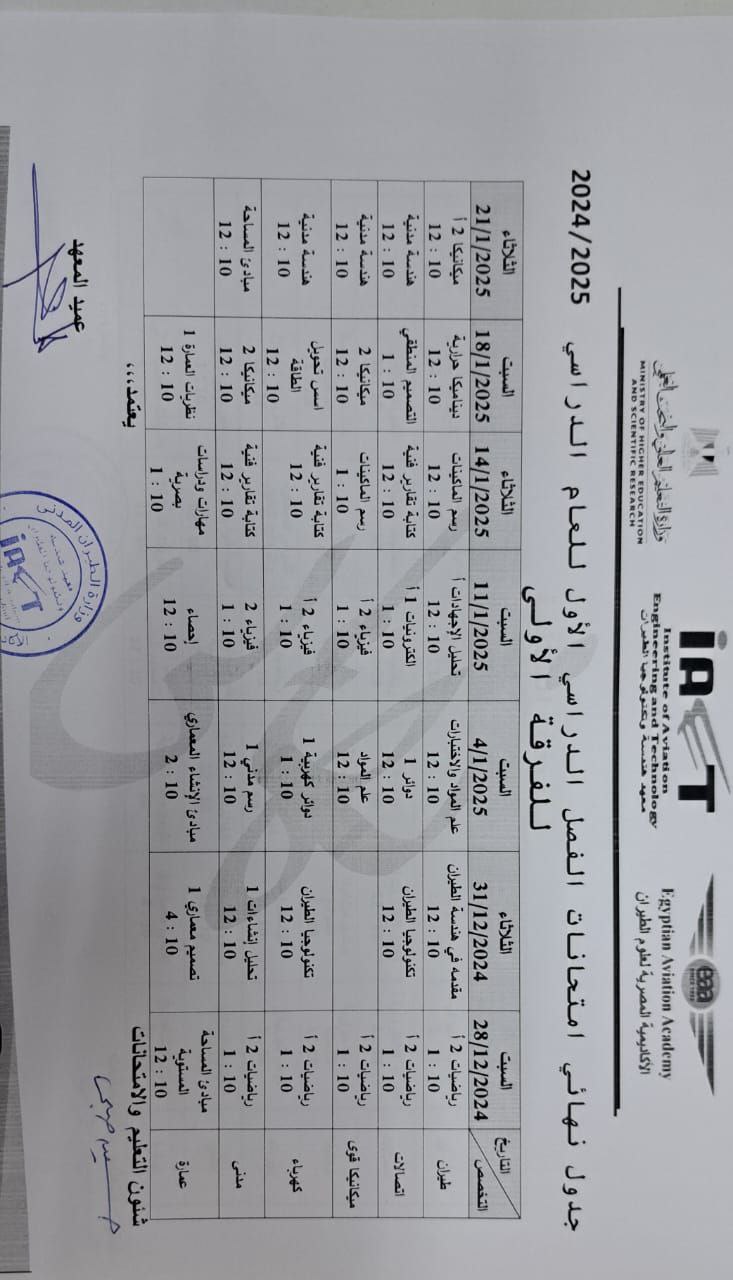 وزارة التعليم العالي والبحث العلمي
MINISTRY OF HIGHER EDUCATION
AND SCIENTIFIC RESEARCH
iAET
Institute of Aviation
Engineering and Technology
معهد هندسة وتكنولوجيا الطيران
eaa
Egyptian Aviation Academy
الأكاديمية المصرية لعلوم الطيران
جدول نهائي امتحانات الفصل الدراسي الأول للعام الدراسي 2024/2025
للفرقة الأولى
التاريخ
التخصص
السبت
28/12/2024
الثلاثاء
31/12/2024
السبت
4/1/2025
السبت
11/1/2025
الثلاثاء
14/1/2025
السبت
18/1/2025
الثلاثاء
21/1/2025
طيران
رياضيات 2 أ
1 : 10
مقدمه في هندسة الطيران
12 : 10
علم المواد والاختبارات
12 : 10
تحليل الإجهادات أ
12 : 10
رسم الماكينات
12 : 10
ديناميكا حرارية
12 : 10
ميكانيكا 2 أ
12 : 10
اتصالات
رياضيات 2 أ
1 : 10
تكنولوجيا الطيران
12 : 10
دوائر 1
12 : 10
الكترونيات 1 أ
1 : 10
كتابة تقارير فنية
12 : 10
التصميم المنطقي
1 : 10
هندسة مدنية
12 : 10
ميكانيكا قوى
رياضيات 2 أ
1 : 10
علم المواد
12 : 10
فيزياء 2 أ
1 : 10
رسم الماكينات
1 : 10
ميكانيكا 2
12 : 10
هندسة مدنية
12 : 10
كهرباء
رياضيات 2 أ
1 : 10
تكنولوجيا الطيران
12 : 10
دوائر كهربية 1
1 : 10
فيزياء 2 أ
1 : 10
كتابة تقارير فنية
12 : 10
اسس تحويل
الطاقة
12 : 10
هندسة مدنية
12 : 10
مدنى
رياضيات 2 أ
1 : 10
تحليل إنشاءات 1
12 : 10
رسم مدني 1
12 : 10
فيزياء 2
1 : 10
كتابة تقارير فنية
12 : 10
ميكانيكا 2
12 : 10
مبادئ المساحة
12 : 10
عمارة
مبادئ المساحة
المستوية
12 : 10
تصميم معماري 1
4 : 10
مبادئ الإنشاء المعماري
2 : 10
إحصاء
12 : 10
مهارات ودراسات
بصرية
1 : 10
نظريات العمارة 1
12 : 10
شئون التعليم والامتحانات
يعتمد،،،
عميد المعهد
وزارة الطيران المدني
iAET